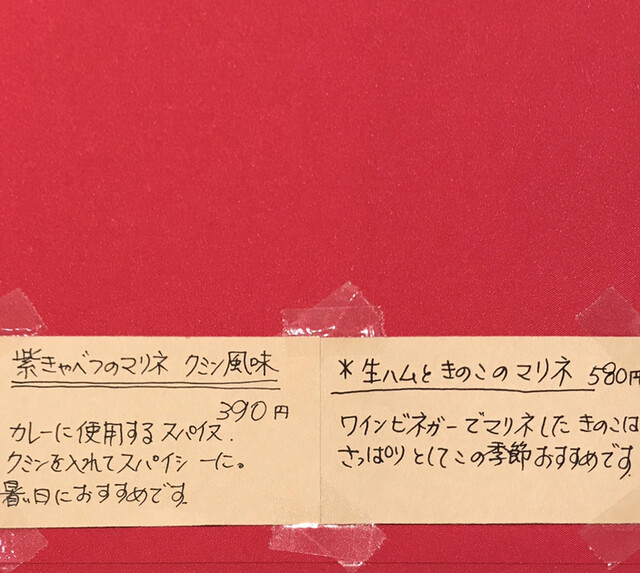 紫きゃべつのマリネ クミン風味
390円
カレーに使用するスパイス.
クミンを入れてスパイシーに。
暑い日におすすめです
*生ハムときのこのマリネ 580円
ワインビネガーでマリネしたきのこは
さっぱりとしてこの季節おすすめです